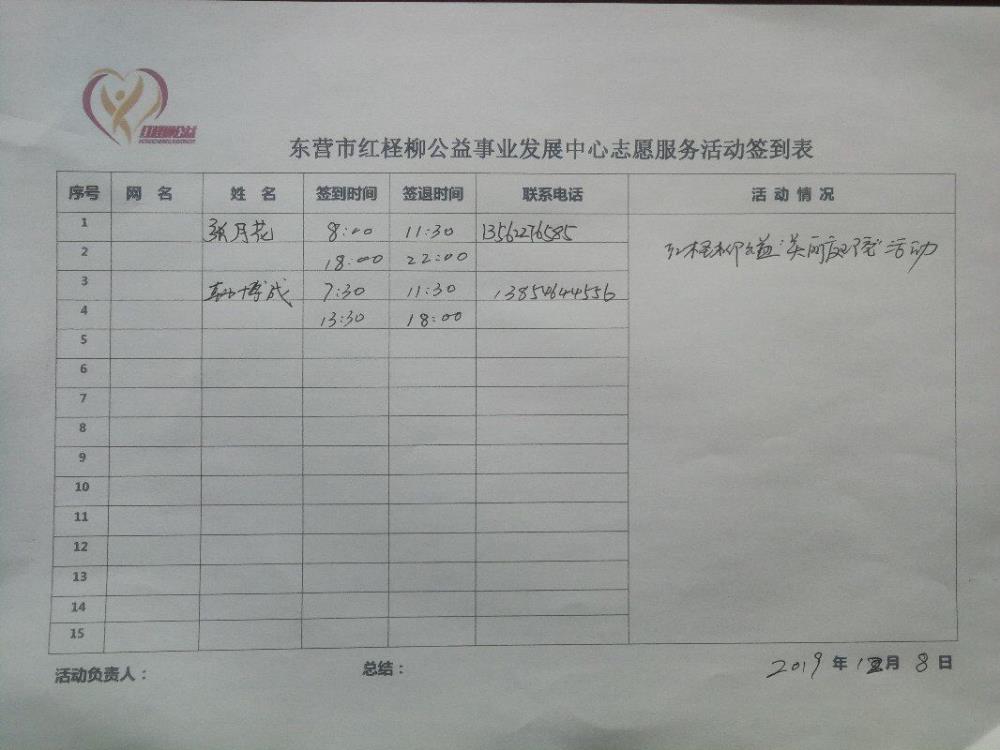 红柽柳公益
东营市红柽柳公益事业发展中心志愿服务活动签到表
序号 网 名 姓 名 签到时间 签退时间 联系电话 活 动 情 况
1 张月花 8:00 11:30 13562276585 红柽柳公益"美丽庭院"活动
2 18:00 22:00
3 博成 7:30 11:30 13854644556
4 13:30 18:00
5
6
7
8
9
10
11
12
13
14
15
活动负责人： 总结： 2019 年 12月 8 日